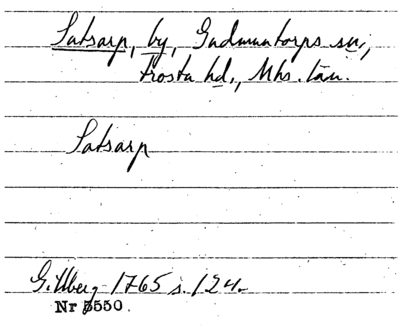 Satsarp, by, Gudmuntorps sn,
Frosta hd., Mhs. län.
Satsarp
Gillberg 1765 s. 124.
Nr 5550.